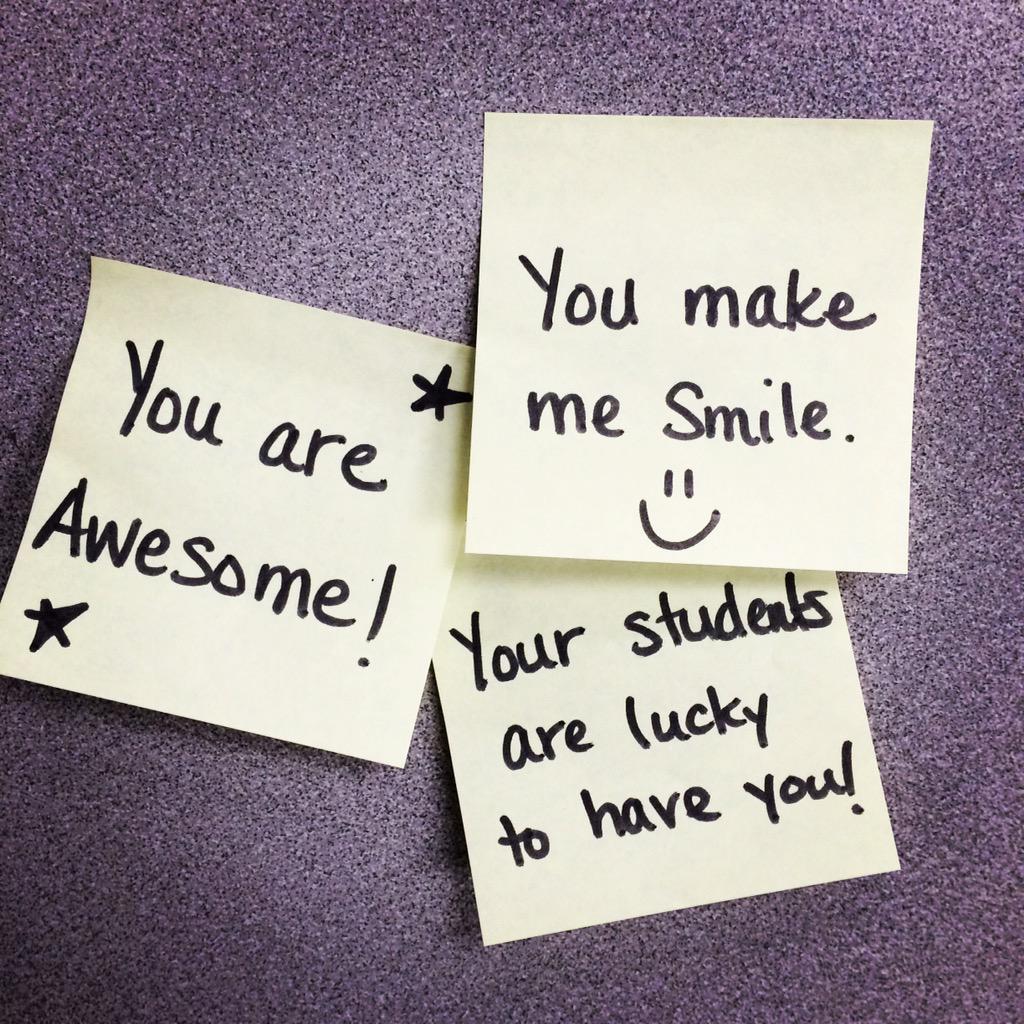 You are
Awesome!
You make
me Smile.
Your students
are lucky
to have you!